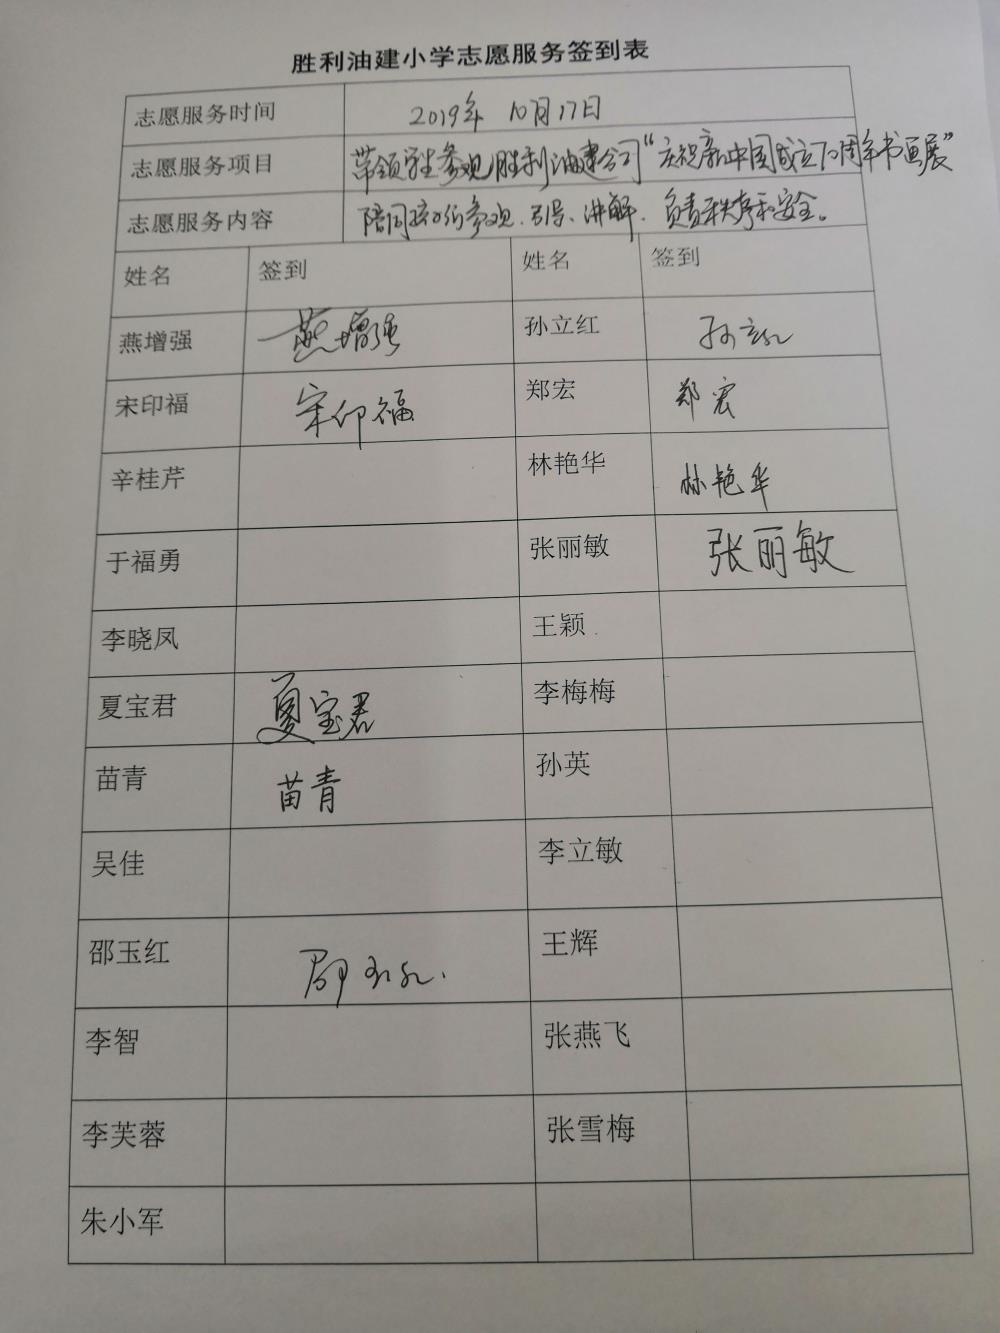 胜利油建小学志愿服务签到表
志愿服务时间 2019年 10月17日
志愿服务项目 带领学生参观胜利油建公司“庆祝新中国成立70周年书画展”
志愿服务内容 陪同孩子们参观、引导、讲解、负责秩序和安全。
姓名 签到 姓名 签到
燕增强 燕增强 孙立红 孙立红
宋印福 宋印福 郑宏 郑宏
辛桂芹 林艳华 林艳华
于福勇 张丽敏 张丽敏
李晓凤 王颖
夏宝君 夏宝君 李梅梅
苗青 苗青 孙英
吴佳 李立敏
邵玉红 邵玉红 王辉
李智 张燕飞
李芙蓉 张雪梅
朱小军